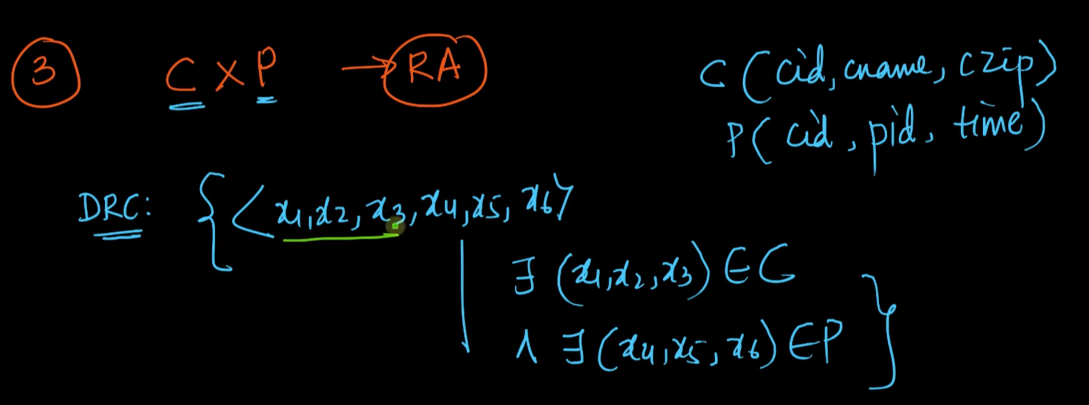 3 C X P → RA
C (cid, cname, czip)
P( cid, pid, time)
DRC: { < x1, x2, x3, x4, x5, x6 >
| ∃ (x1, x2, x3) ∈ C
∧ ∃ (x4, x5, x6) ∈ P }